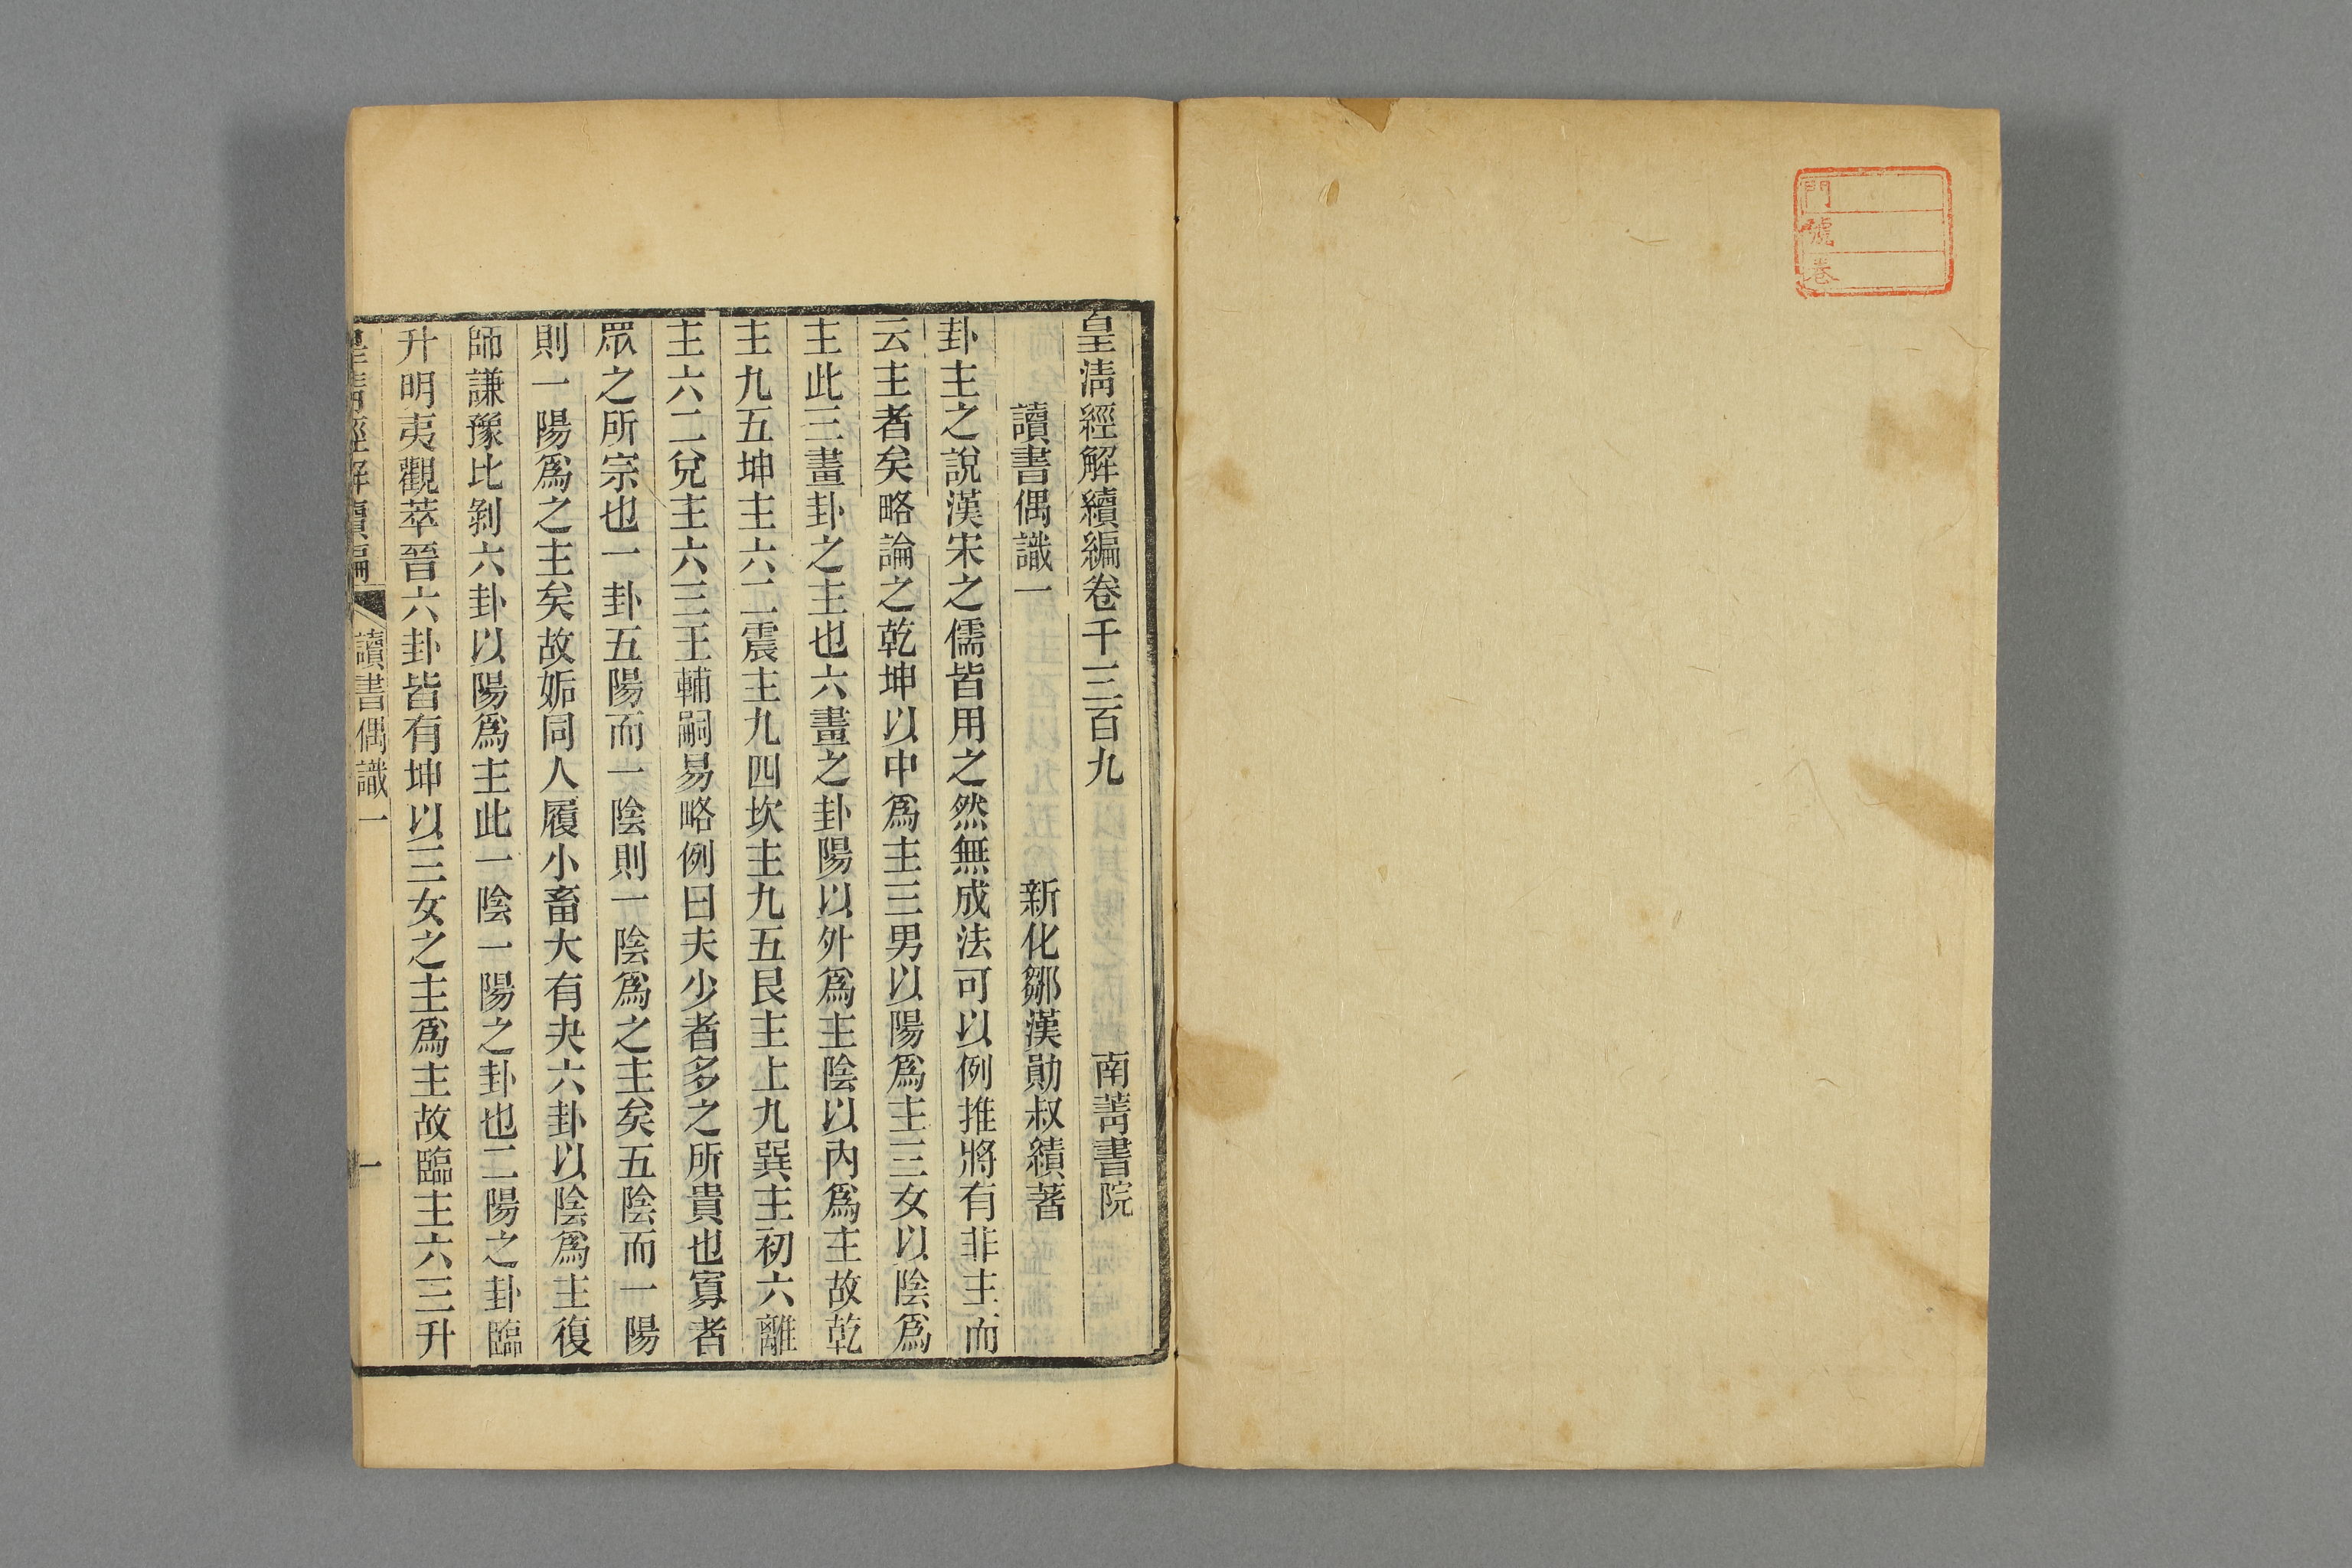 門
號
卷
皇清經解續編卷千三百九 南菁書院
讀書偶識一 新化鄒漢勛叔績著
卦主之說漢宋之儒皆用之然無成法可以例推將有非主而
云主者矣略論之乾坤以中爲主三男以陽爲主三女以陰爲
主此三畫卦之主也六畫之卦陽以外爲主陰以內爲主故乾
主九五坤主六二震主九四坎主九五艮主上九巽主初六離
主六二兌主六三王輔嗣易略例曰夫少者多之所貴也寡者
眾之所宗也一卦五陽而一陰則一陰爲之主矣五陰而一陽
則一陽爲之主矣故姤同人履小畜大有夬六卦以陰爲主復
師謙豫比剝六卦以陽爲主此一陰一陽之卦也二陽之卦臨
升明夷觀萃晉六卦皆有坤以三女之主爲主故臨主六三升
皇清經解續編 讀書偶識一 一